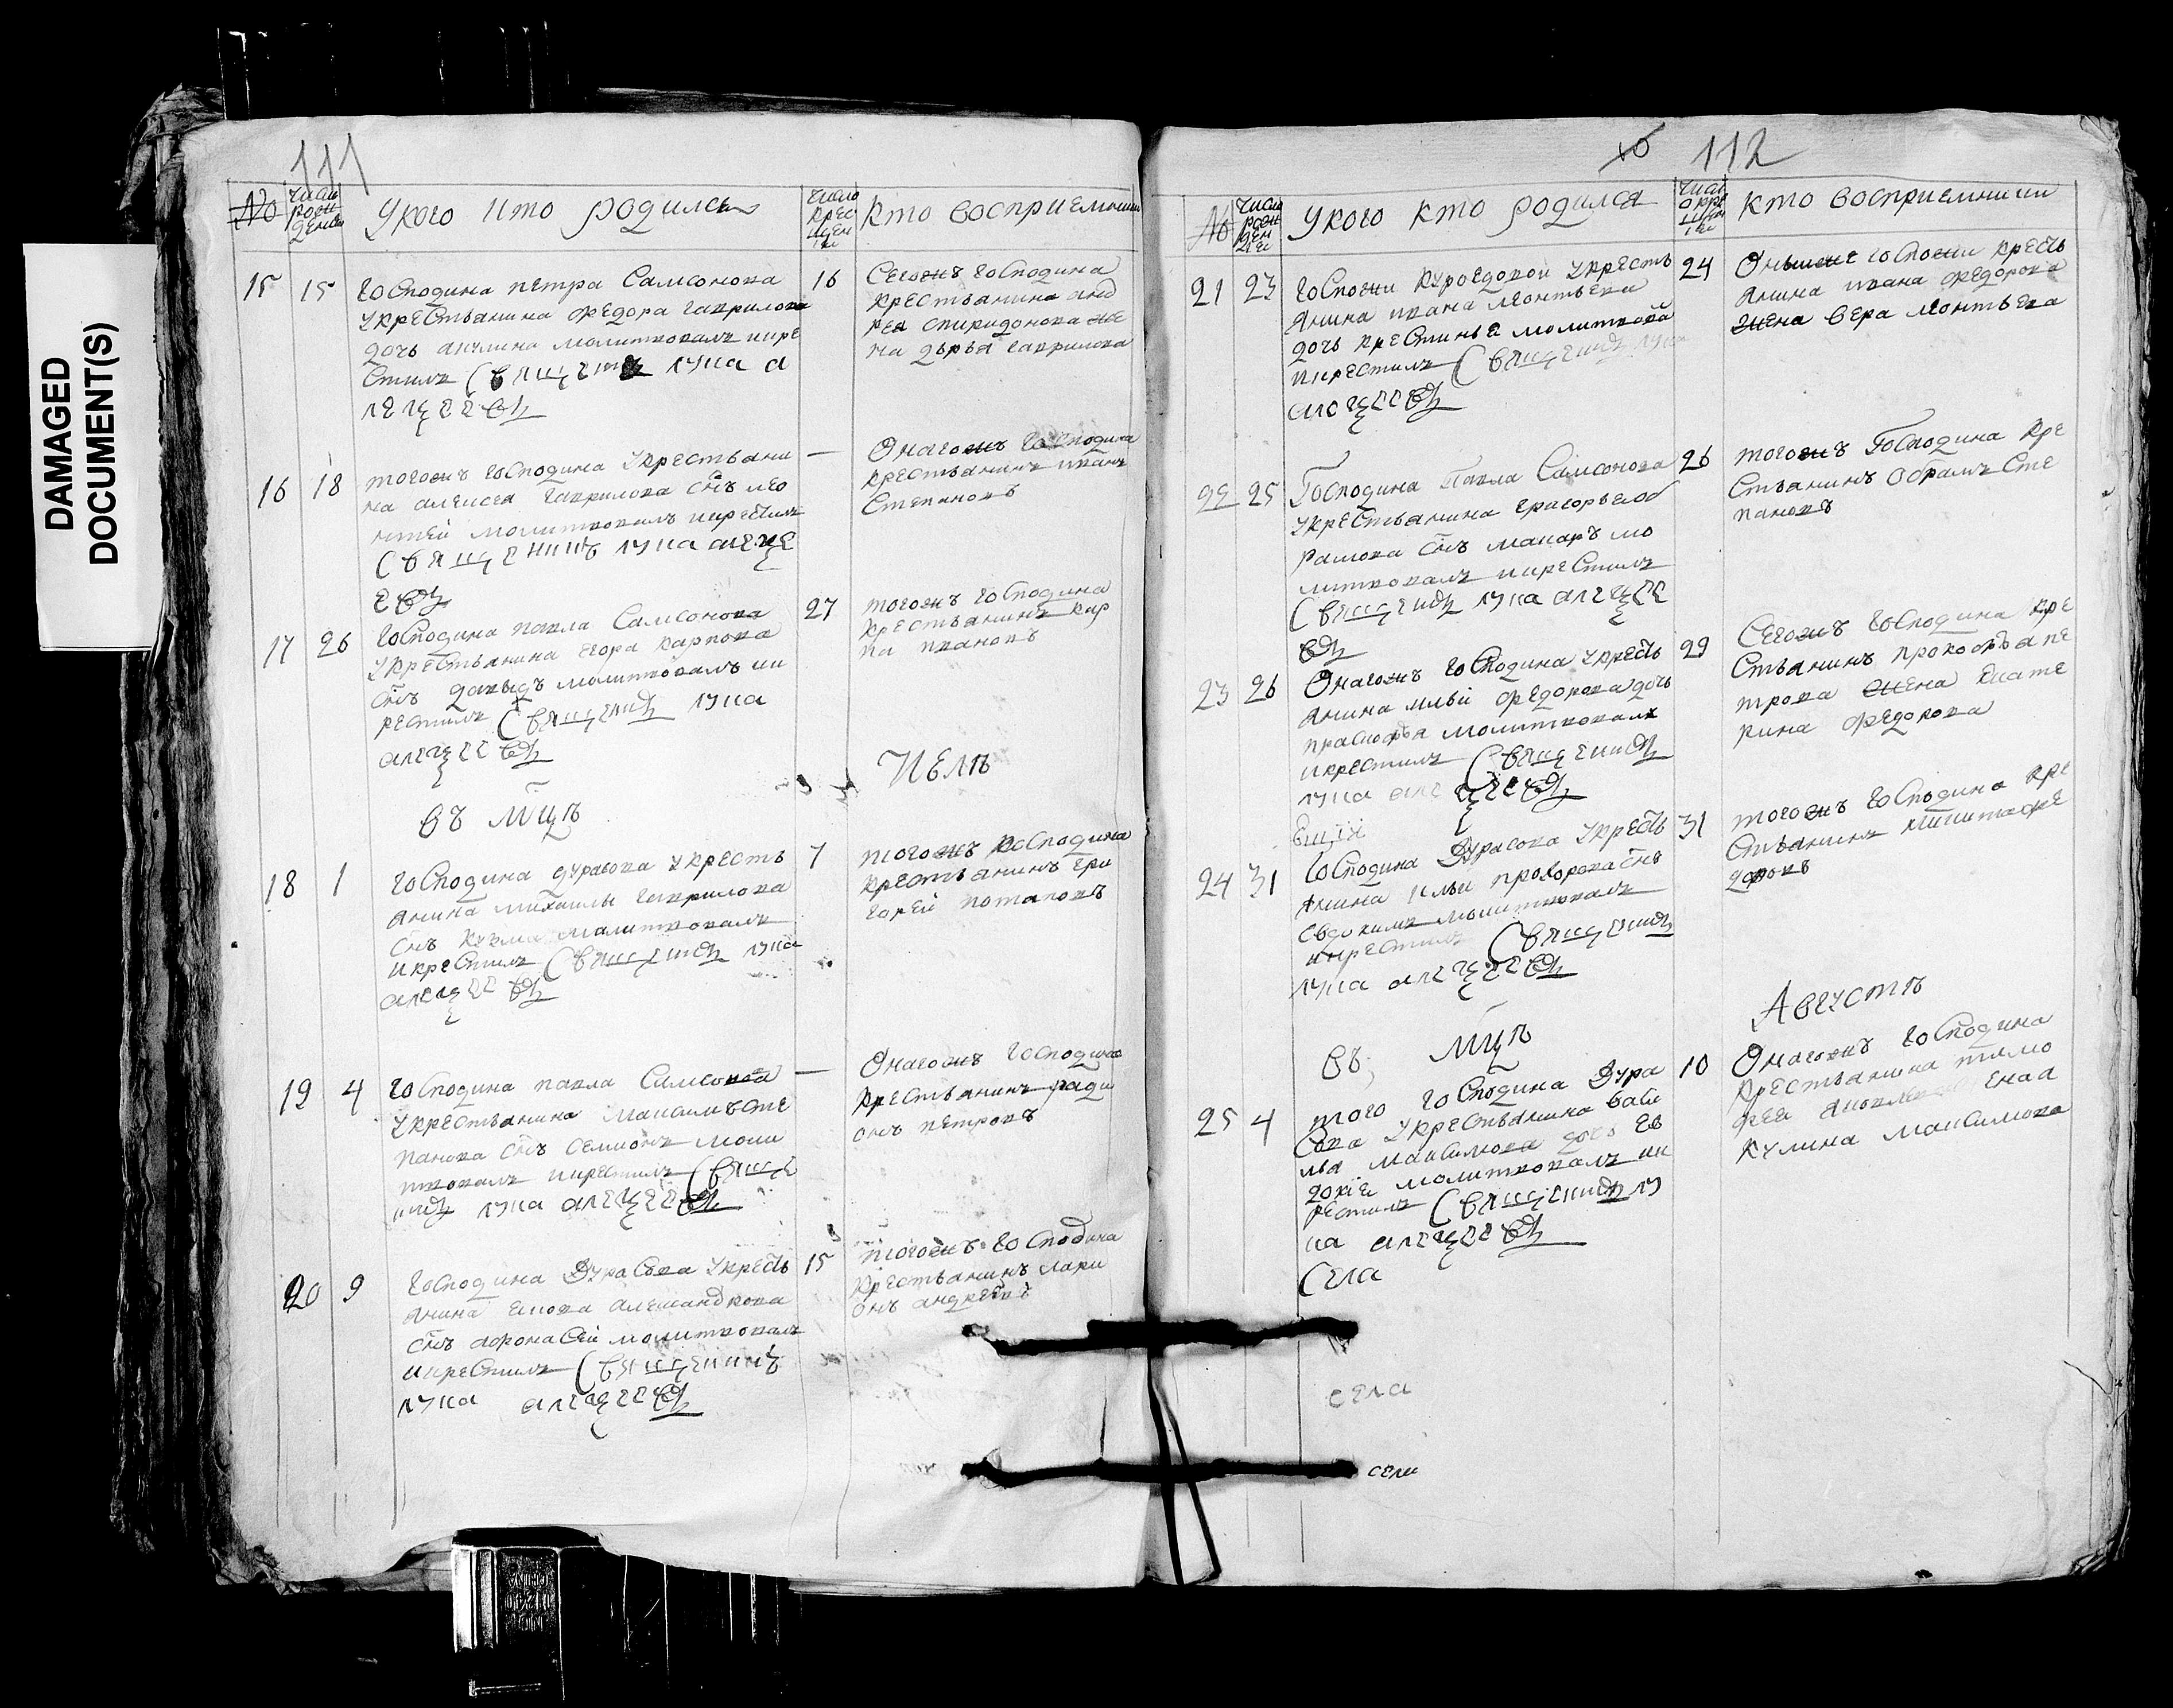 DAMAGED
DOCUMENT(S)
111
№
число рожденia
У кого кто родился
число крещенiя
кто восприемники
15
15
Господина петра Самсонова
у крестьянина федора гаврилова
дочь акулина молитвовалъ икре
стилъ Священникъ лука а
леѯеевъ
16
Сегожъ господина
крестьянина анд
рея спиридонова же
на дарья гаврилова
16
18
тогожъ господина у крестьяни
на алексея гаврилова снъ лео
нтей молитвовалъ икрестилъ
Священникъ лука алеѯе
евъ
—
Онагожъ господина
крестьянинъ иванъ
Степановъ
17
26
господина павла Самсонова
у крестьянина егора карпова
снъ давыдъ молитвовалъ ик
рестилъ Священникъ лука
алеѯеевъ
27
тогожъ господина
крестьянинъ кир
ивановъ
въ мцѣ
Июлѣ
18
1
господина дурасова у кресть
янина михаилы гаврилова
снъ кузма молитвовалъ
икрестилъ Священникъ лука
алеѯеевъ
7
тогожъ господина
крестьянинъ гри
горей потаповъ
19
4
господина павла Самсонова
у крестьянина максима сте
панова снъ семионъ моли
твовалъ икрестилъ Священ
никъ лука алеѯеевъ
—
Онагожъ господина
крестьянинъ ради
онъ петровъ
20
9
господина Дурасова у кресть
янина александрова
снъ афонасей молитвовалъ
икрестилъ Священникъ
лука алеѯеевъ
15
тогожъ господина
крестьянинъ лари
онъ андреевъ
10 112
№
число рожденiе
У кого кто родился
кто восприемники
21
23
госпожи куроедовой у кресть
янина ивана леонтьева
дочь крестинье молитвовалъ
икрестилъ Священникъ лука
алеѯеевъ
24
Оныеже госпожи кресть
янина ивана федорова
жена вера леонтьева
22
25
Господина Павла Самсонова
у крестьянина григорья об
рамова снъ макаръ мо
литвовалъ икрестилъ
Священникъ лука алеѯее
въ
26
тогожъ Господина кре
стьянинъ обрамъ сте
пановъ
23
26
Онагожъ господина у кресть
янина ильи федорова дочь
прасковья молитвовалъ
икрестилъ Священникъ
лука алеѯеевъ
29
Сегожъ господина кре
стьянинъ прокофья пе
трова жена кате
рина федорова
24
31
господина Дурасова у кресть
янина ильи прохорова снъ
евдокимъ молитвовалъ
икрестилъ Священникъ
лука алеѯеевъ
31
тогожъ господина кре
стьянинъ никита фе
доровъ
въ мцѣ
Августѣ
25
4
того господина Дура
сова у крестьянина васи
лья максимова дочь ев
докiя молитвовалъ ик
рестилъ Священникъ лу
ка алеѯеевъ
10
Онагожъ господина
крестьянина тимо
фея яковлева жена а
кулина максимова
Села
села
села